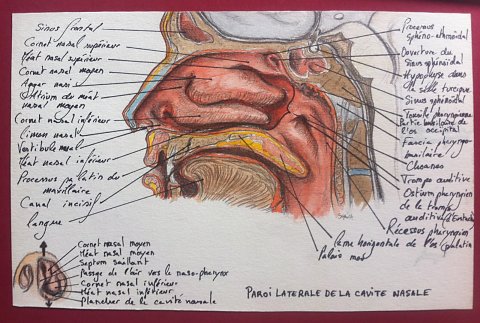 Sinus frontal
Cornet nasal supérieur
Méat nasal supérieur
Cornet nasal moyen
Agger nasi
Ostium du méat
nasal moyen
Cornet nasal inférieur
Limen nasal
Vestibule nasal
Méat nasal inférieur
Processus palatin du
maxillaire
Canal incisif
langue
Processus
sphéno-ethmoïdal
Ouverture du
Sinus sphénoïdal
Hypophyse dans
la selle turcique
Sinus sphénoïdal
Tonsille pharyngienne
Partie basilaire de
l'os occipital
Fascia pharyngo-
basilaire
Choanes
Trompe auditive
Ostium pharyngien
de la trompe
auditive (d'Eustache)
Récessus pharyngien
Lame horizontale de l'os palatin
Palais mou
Cornet nasal moyen
Méat nasal moyen
Septum saillant
Passage de l'air vers le naso-pharynx
Cornet nasal inférieur
Méat nasal inférieur
Plancher de la cavité nasale
PAROI LATERALE DE LA CAVITE NASALE